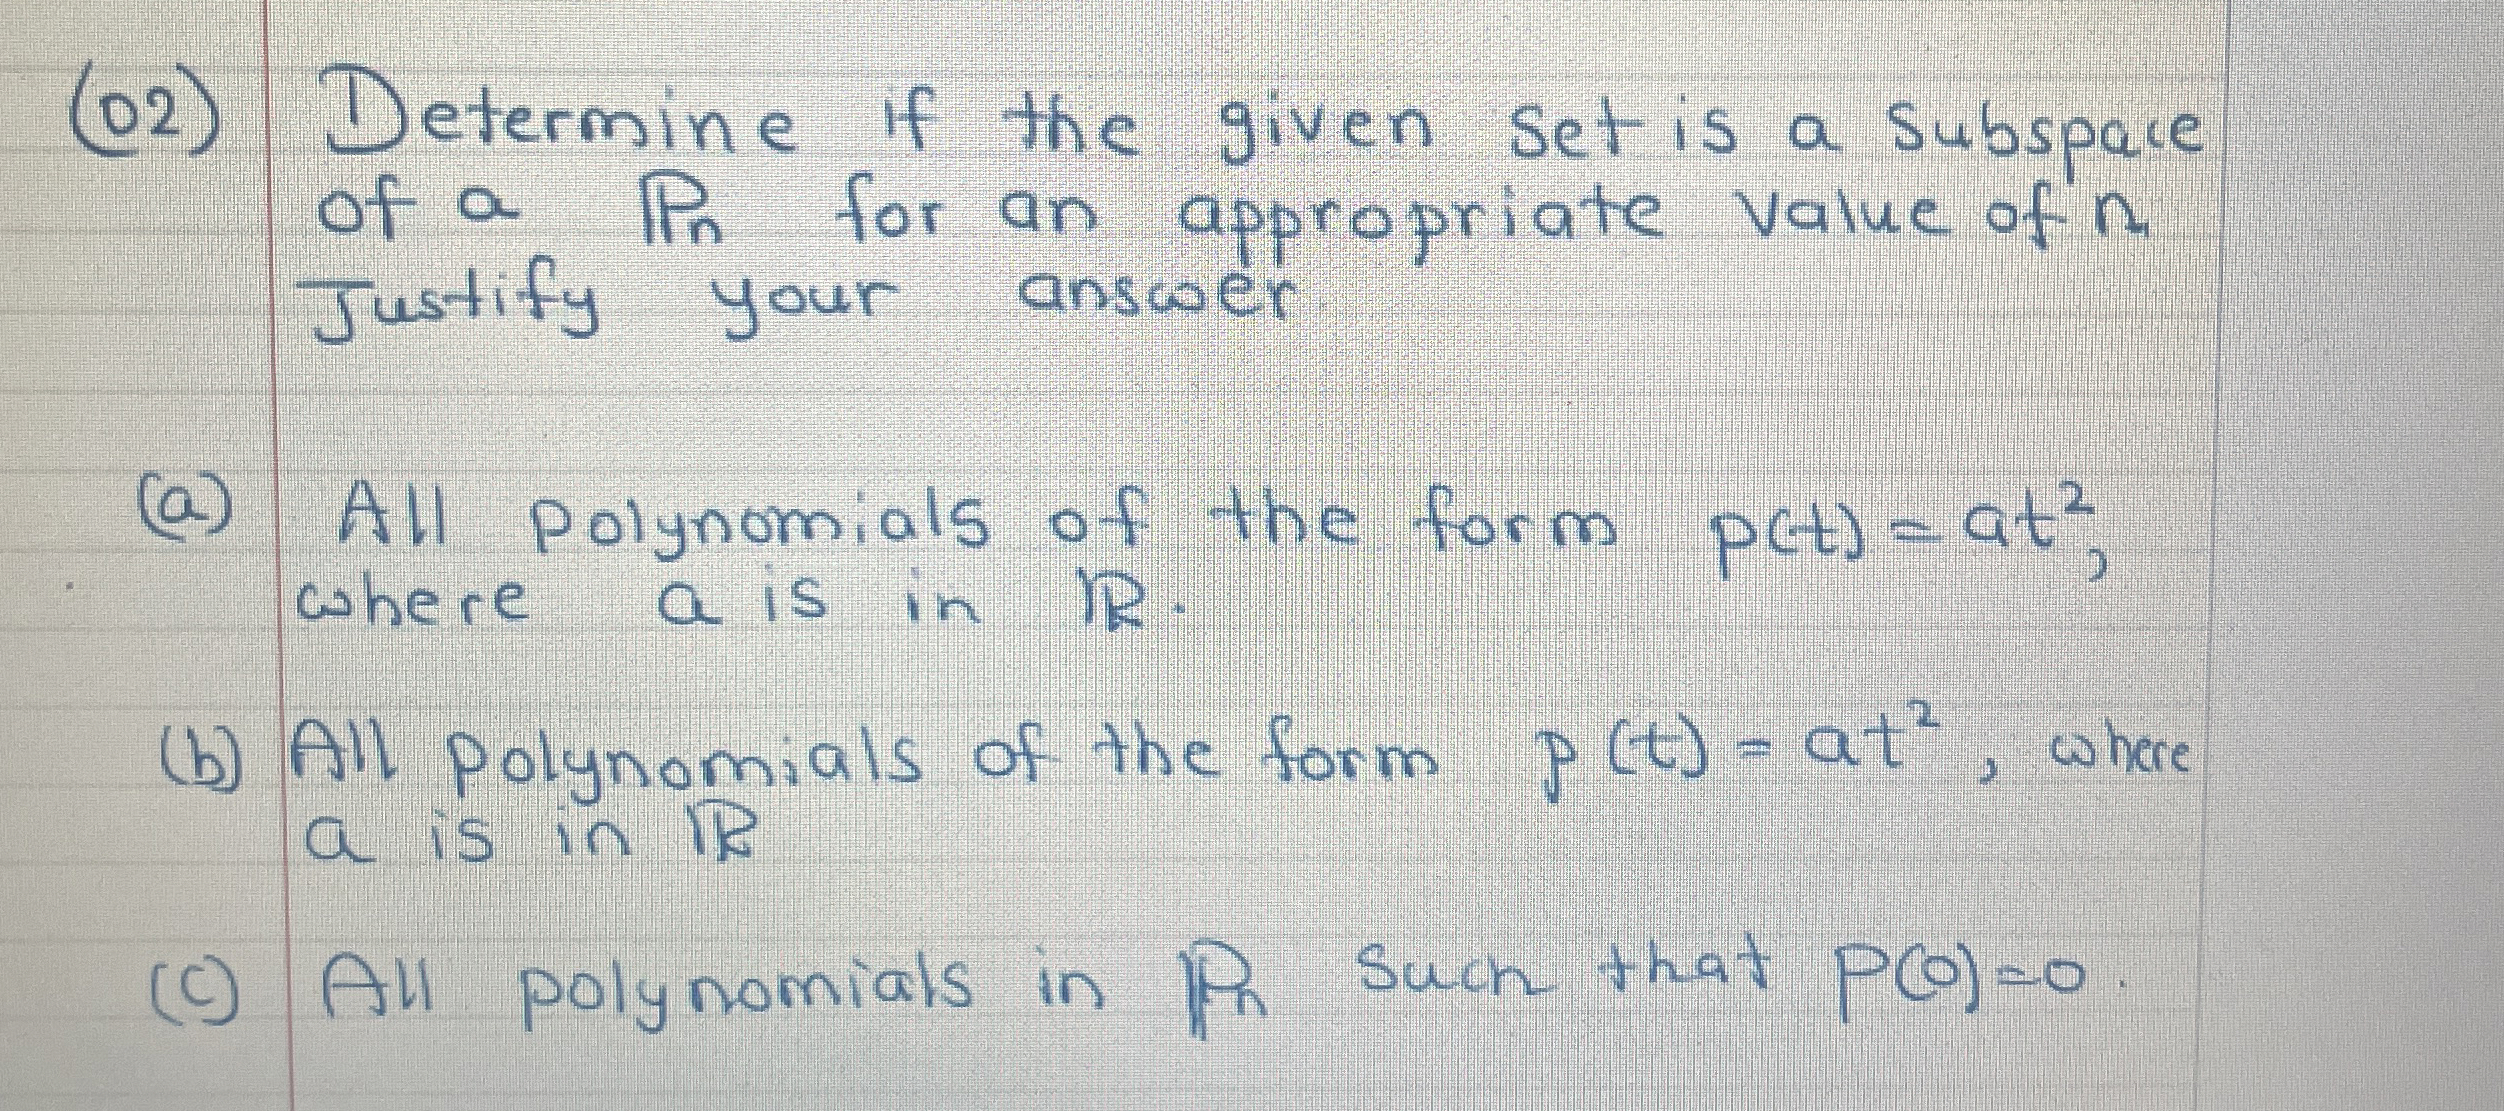 (02) Determine if the given set is a subspace
of a ℙn for an appropriate value of n
Justify your answer
(a) All polynomials of the form p(t) = at²,
where a is in ℝ.
(b) All polynomials of the form p(t) = at², where
a is in ℝ
(c) All polynomials in ℙn such that P(0)=0.